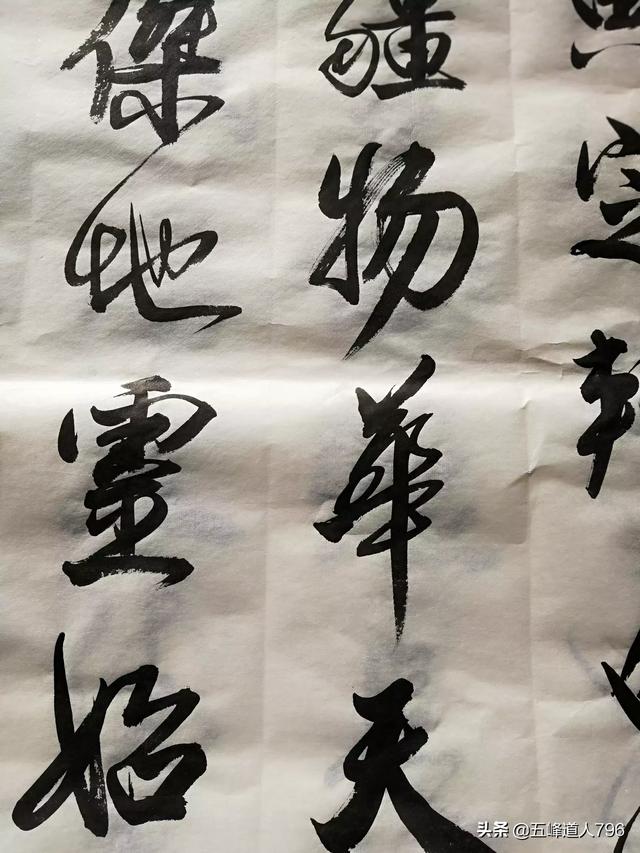 定
疆物華天
傑地靈始
头条 @五峰道人796